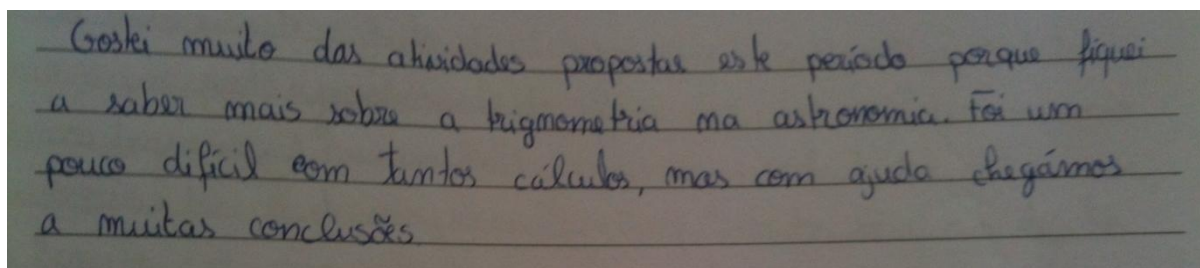 Gostei muito das atividades propostas este período porque fiquei
a saber mais sobre a trignometria na astronomia. Foi um
pouco difícil com tantos cálculos, mas com ajuda chegámos
a muitas conclusões.